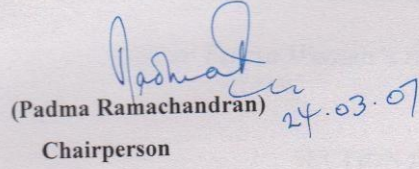 Padma
(Padma Ramachandran) 24.03.07
Chairperson